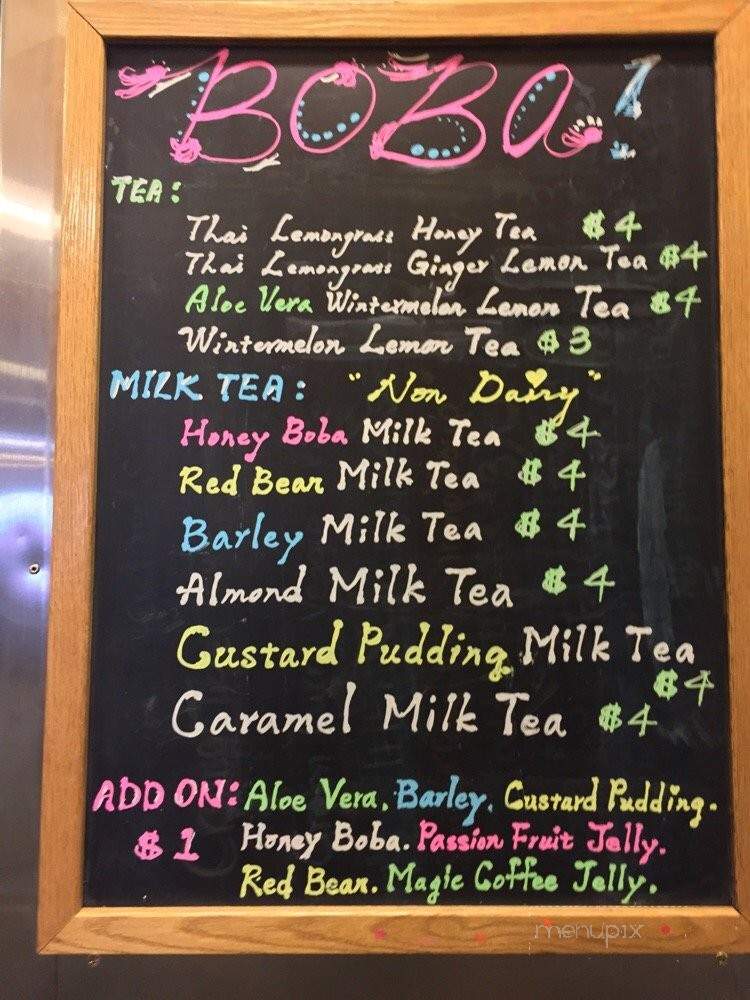 BOBA!
TEA:
Thai Lemongrass Honey Tea $4
Thai Lemongrass Ginger Lemon Tea $4
Aloe Vera Wintermelon Lemon Tea $4
Wintermelon Lemon Tea $3
MILK TEA: "Non Dairy"
Honey Boba Milk Tea $4
Red Bean Milk Tea $4
Barley Milk Tea $4
Almond Milk Tea $4
Custard Pudding Milk Tea
$4
Caramel Milk Tea $4
ADD ON: Aloe Vera. Barley. Custard Pudding.
$1 Honey Boba. Passion Fruit Jelly.
Red Bean. Magic Coffee Jelly.
menupix